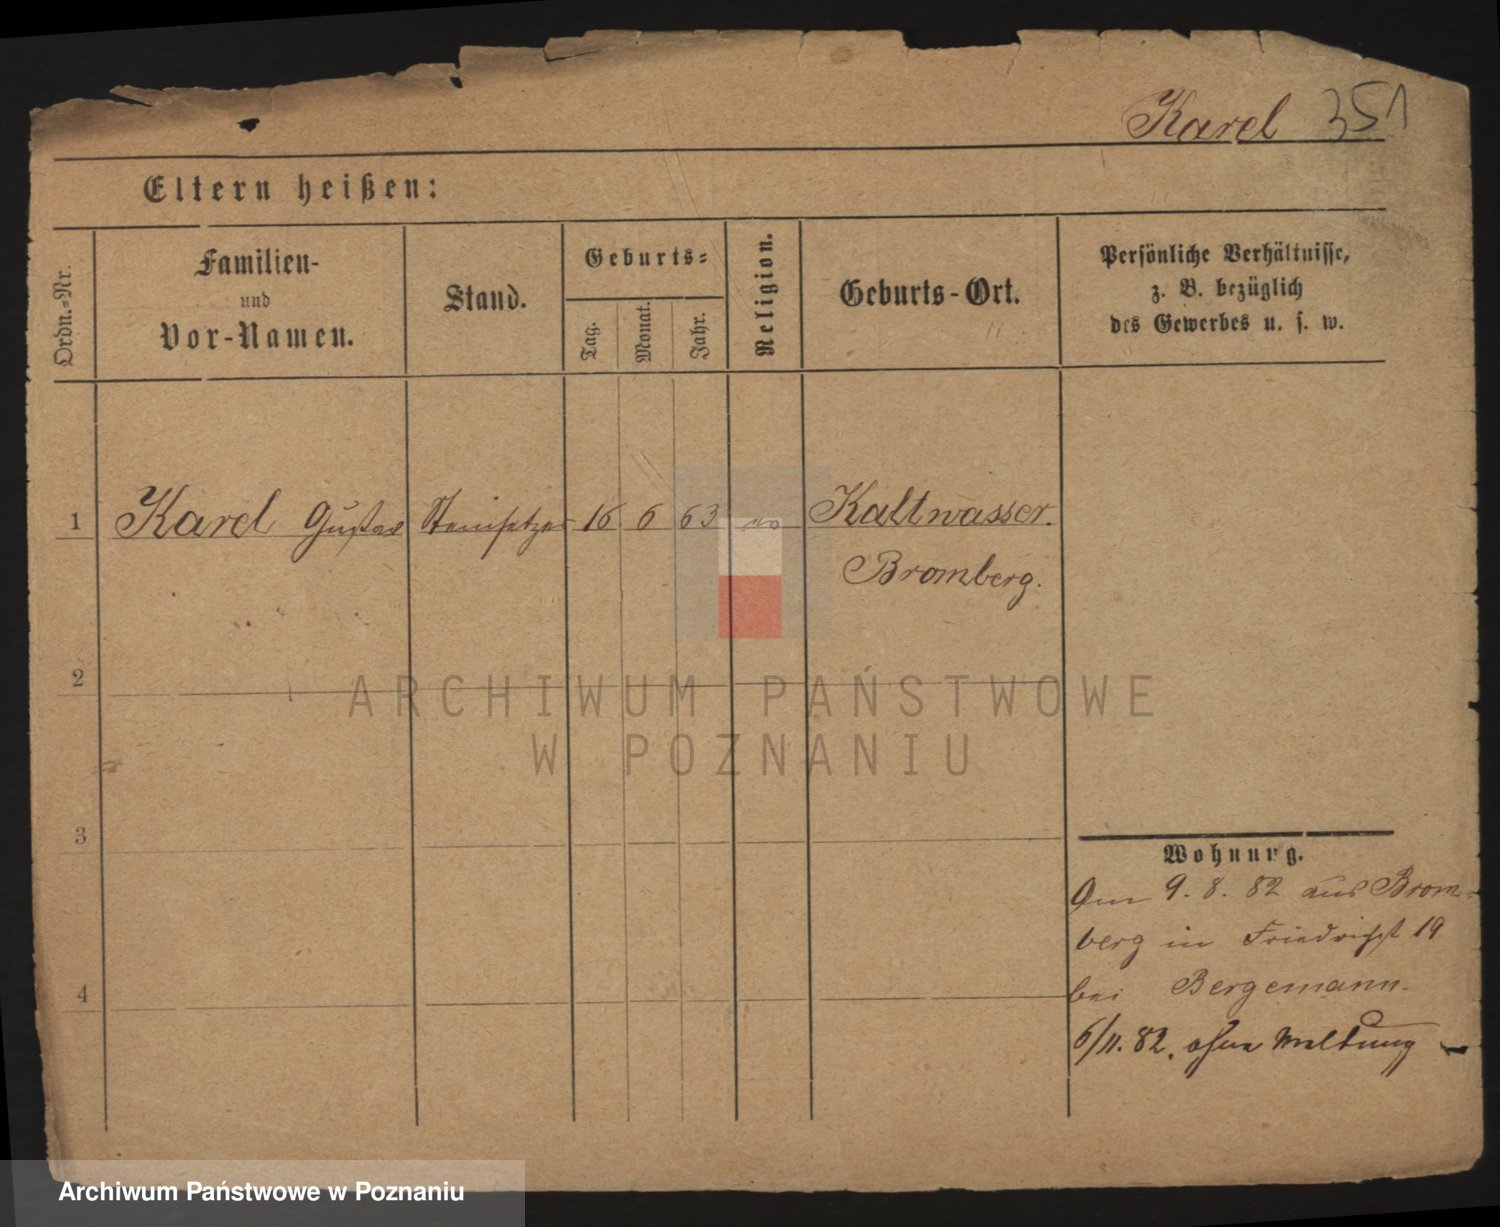 Karel 351
Eltern heißen:
Ordn.-Nr.
Familien-
und
Vor-Namen.
Stand.
Geburts-
Tag.
Monat.
Jahr.
Religion.
Geburts-Ort.
Persönliche Verhältnisse,
z. B. bezüglich
des Gewerbes u. s. w.
1 Karel Gustav Steinsetzer 16 6 63 Kaltwasser.
Bromberg.
2
3
4
Wohnung.
Am 9. 8. 82 aus Brom-
berg in Friedrichst 19
bei Bergemann.
6/11. 82. ohne Meldung
ARCHIWUM PAŃSTWOWE
W POZNANIU
Archiwum Państwowe w Poznaniu